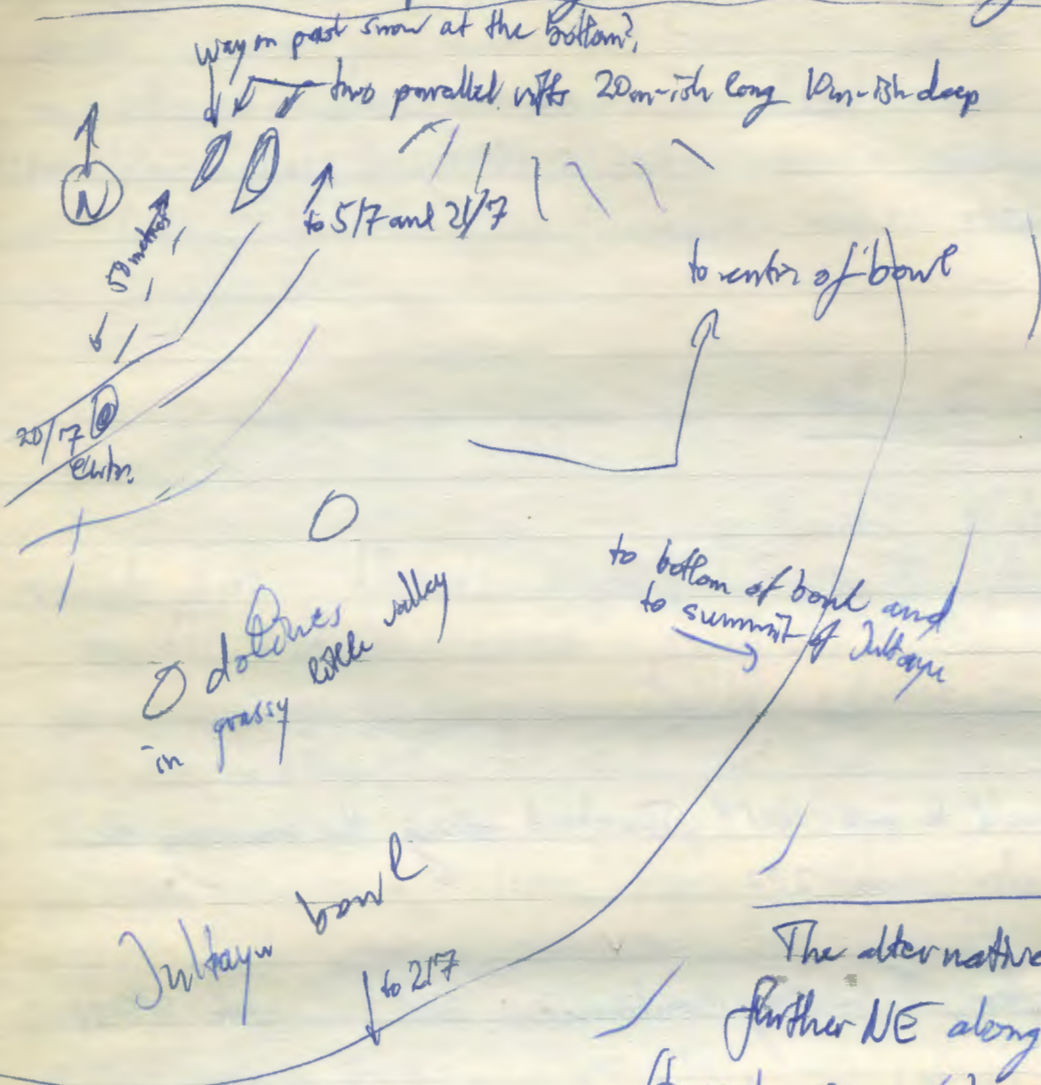 way on past snow at the bottom?
two parallel rifts 20m-ish long 10m-ish deep
N
50 metres
to 5/7 and 21/7
to centre of bowl
20/7
entr.
to bottom of bowl and
to summit of Jultayu
dolines
in grassy little valley
Jultayu bowl
to 2/7
The alternative
further NE along